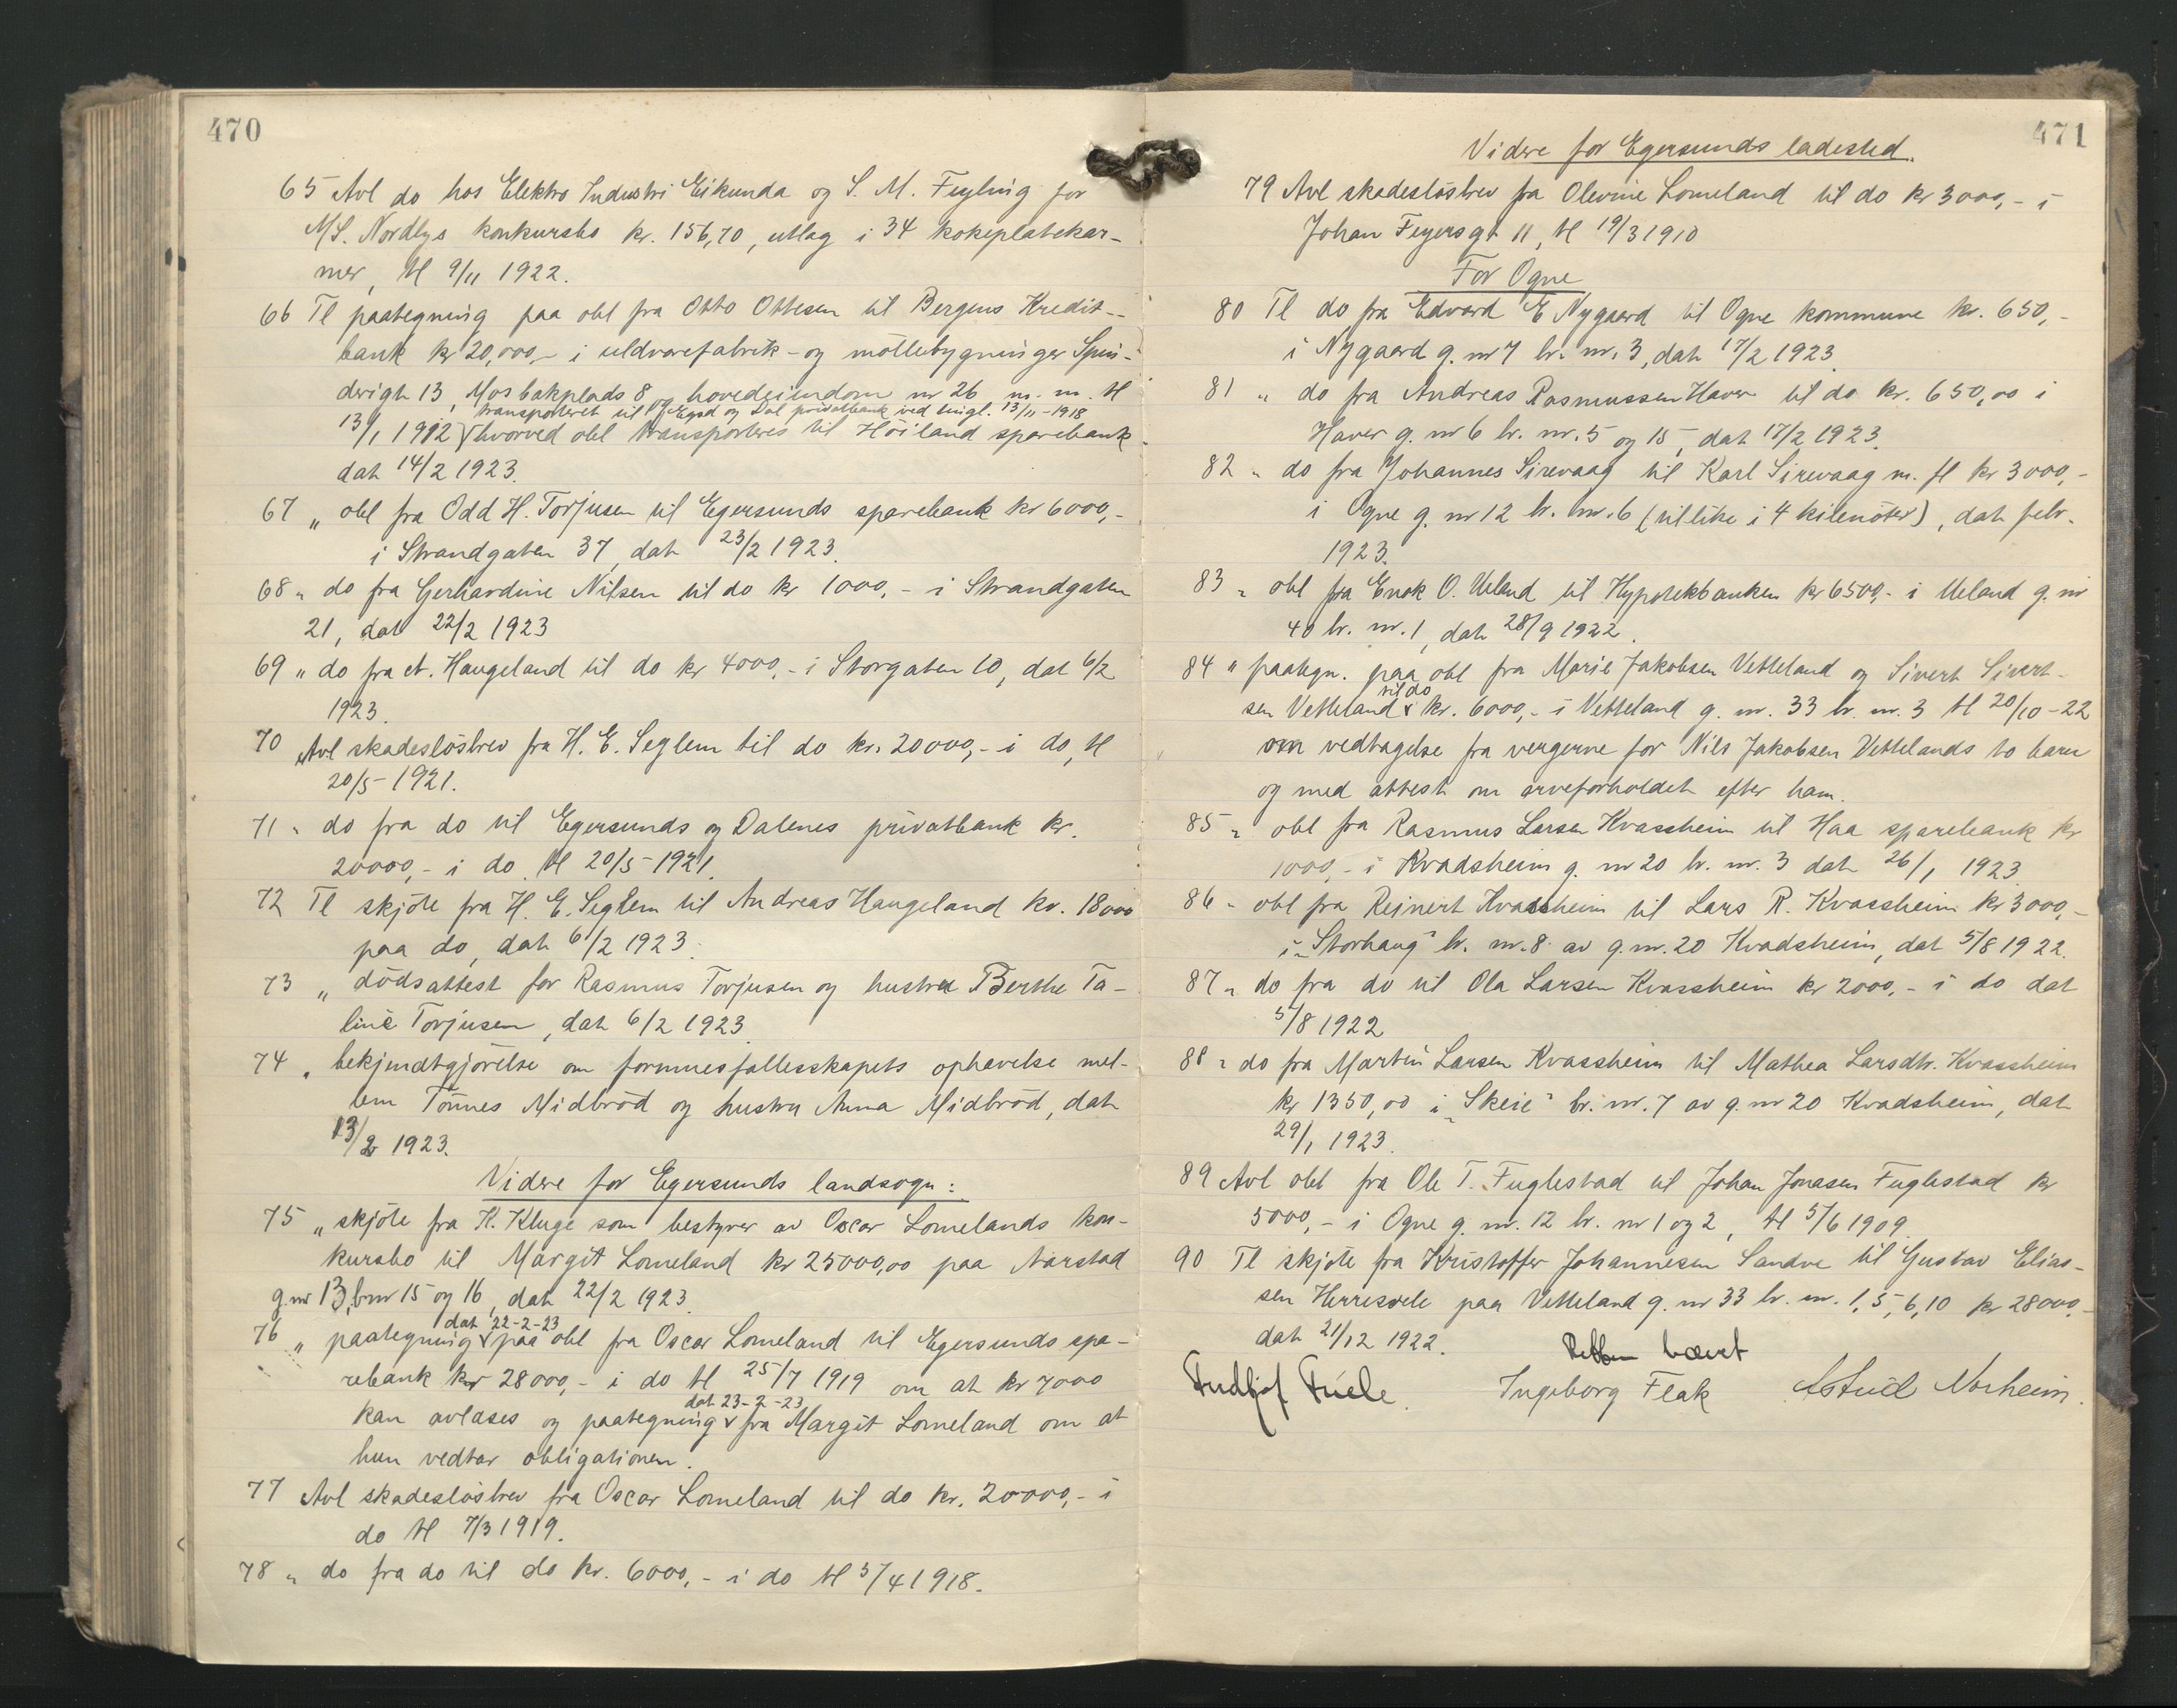 470
65 Avl do hos Elektro Industri Eikunda og S. M. Feyling for
M/S. Nordlys konkursbo kr. 156,70, utlag i 34 kokeplatekar-
mer, tl 9/11 1922.
66 Tl paategning paa obl fra Otto Ottesen til Bergens Kredit-
bank kr 20,000,- i uldvarefabrik- og möllebygninger Spin-
derigt 13, Mosbakplads 8 og hovedeiendom nr 26 m. m. tl
transporteret til Egsd og Dal privatbank ved tingl. 13/11-1918
13/1 1912 hvorved obl transporteres til Höiland sparebank
dat 14/2 1923.
67 „ obl fra Odd H. Torjusen til Egersunds sparebank kr 6000,-
i Strandgaten 37, dat 23/2 1923.
68 „ do fra Gerhardine Nilsen til do kr 1000,- i Strandgaten
21, dat 22/2 1923
69 „ do fra A. Haugeland til do kr 4000,- i Storgaten 10, dat 6/2
1923.
70 Avl skadeslösbrev fra H. E. Seglem til do kr. 20000,- i do, tl
20/5-1921.
71 „ do fra do til Egersunds og Dalenes privatbank kr.
20000,- i do. tl 20/5-1921.
72 Tl skjöte fra H. E. Seglem til Andreas Haugeland kr. 18000
paa do, dat 6/2 1923.
73 „ dödsattest for Rasmus Torjusen og hustru Berthe Ta-
line Torjusen, dat 6/2 1923.
74 „ bekjendtgjörelse om formuesfællesskapets ophævelse mel-
lem Tönnes Midbröd og hustru Anna Midbröd, dat
13/2 1923.
Videre for Egersunds landsogn:
75 „ skjöte fra K. Kluge som bestyrer av Oscar Lomelands kon-
kursbo til Margit Lomeland kr 25000,00 paa Aarstad
g.nr 13, bnr 15 og 16, dat 22/2 1923.
dat 22-2-23
76 „ paategning paa obl fra Oscar Lomeland til Egersunds spa-
rebank kr 28000,- i do tl 25/7 1919 om at kr 7000
dat 23-2-23
kan avlöses og paategning fra Margit Lomeland om at
hun vedtar obligationen.
77 Avl skadeslösbrev fra Oscar Lomeland til do kr. 20000,- i
do tl 7/3 1919.
78 „ do fra do til do kr. 6000,- i do tl 5/4 1918.
471
Videre for Egersunds ladested.
79 Avl skadeslösbrev fra Olevine Lomeland til do kr 3000,- i
Johan Feyersgt 11, tl 19/3 1910
For Ogne
80 Tl do fra Edvard E Nygaard til Ogne kommune kr. 650,-
i Nygaard g. nr 7 br. nr. 3, dat 17/2 1923.
81 „ do fra Andreas Rasmussen Haver til do kr. 650,00 i
Haver g. nr 6 br. nr. 5 og 15, dat 17/2 1923.
82 „ do fra Johannes Sirevaag til Karl Sirevaag m. fl kr 3000,-
i Ogne g. nr 12 br. nr. 6 (tillike i 4 kilenöter), dat febr.
1923.
83 „ obl fra Enok O. Ueland til Hypotekbanken kr 6500,- i Ueland g. nr
40 br. nr. 1, dat 28/9 1922.
84 „ paategn. paa obl fra Marie Jakobsen Vetteland og Sivert Sivert-
til do
sen Vetteland kr. 6000,- i Vetteland g. nr. 33 br. nr. 3 tl 20/10-22
om vedtagelse fra vergerne for Nils Jakobsen Vettelands to barn
og med attest om arveforholdet efter ham.
85 „ obl fra Rasmus Larsen Kvassheim til Haa sparebank kr
1000,- i Kvadsheim g. nr 20 br. nr. 3 dat 26/1 1923.
86 „ obl fra Reinert Kvassheim til Lars R. Kvassheim kr 3000,-
i „Storhaug" br. nr. 8 av g. nr. 20 Kvadsheim, dat 5/8 1922.
87 „ do fra do til Ola Larsen Kvassheim kr 2000,- i do dat
5/8 1922
88 „ do fra Martin Larsen Kvassheim til Mathea Larsdtr. Kvassheim
kr 1350,00 i „Skeie" br. nr. 7 av g. nr 20 Kvadsheim, dat
29/1 1923.
89 Avl obl fra Ole T. Fuglestad til Johan Jonasen Fuglestad kr
5000,- i Ogne g. nr. 12 br. nr 1 og 2, tl 5/6 1909.
90 Tl skjöte fra Kristoffer Johannesen Sandve til Gustav Elias-
sen Herresvele paa Vetteland g. nr 33 br. nr. 1, 5, 6, 10 kr 28000,-
dat 21/12 1922.
Retten hævet
Fridtjof Friele. Ingeborg Flak Astrid Norheim.